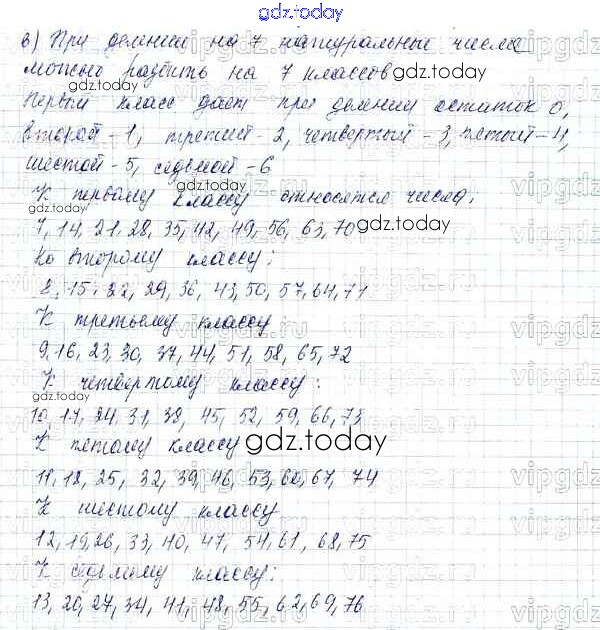 gdz.today
в) При делении на 7 натуральные числа
можно разбить на 7 классов
gdz.today
gdz.today
Первый класс дает при делении остаток 0,
второй - 1, третий - 2, четвертый - 3, пятый - 4,
шестой - 5, седьмой - 6
К первому классу относятся числа:
gdz.today
gdz.today
7, 14, 21, 28, 35, 42, 49, 56, 63, 70
Ко второму классу:
8, 15, 22, 29, 36, 43, 50, 57, 64, 71
К третьему классу:
9, 16, 23, 30, 37, 44, 51, 58, 65, 72
К четвертому классу:
gdz.today
10, 17, 24, 31, 38, 45, 52, 59, 66, 73
К пятому классу
gdz.today
11, 18, 25, 32, 39, 46, 53, 60, 67, 74
К шестому классу
12, 19, 26, 33, 40, 47, 54, 61, 68, 75
К седьмому классу:
13, 20, 27, 34, 41, 48, 55, 62, 69, 76